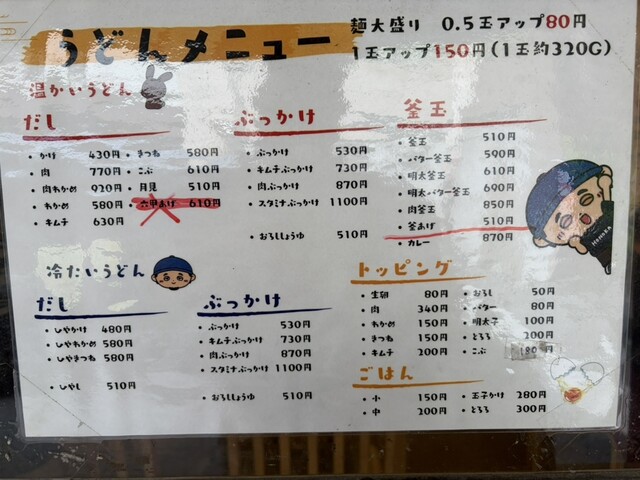 うどんメニュー
麺大盛り 0.5玉アップ80円
1玉アップ150円(1玉約320G)
温かいうどん
だし
・かけ 430円
・肉 770円
・肉わかめ 920円
・わかめ 580円
・キムチ 630円
・きつね 580円
・こぶ 610円
・月見 510円
・六甲あげ 610円
ぶっかけ
・ぶっかけ 530円
・キムチぶっかけ 730円
・肉ぶっかけ 870円
・スタミナぶっかけ 1100円
・おろししょうゆ 510円
釜玉
・釜玉 510円
・バター釜玉 590円
・明太釜玉 610円
・明太バター釜玉 690円
・肉釜玉 850円
・釜あげ 510円
・カレー 870円
冷たいうどん
だし
・しやかけ 480円
・しやわかめ 580円
・しやきつね 580円
・しやし 510円
ぶっかけ
・ぶっかけ 530円
・キムチぶっかけ 730円
・肉ぶっかけ 870円
・スタミナぶっかけ 1100円
・おろししょうゆ 510円
トッピング
・生卵 80円
・肉 340円
・わかめ 150円
・きつね 150円
・キムチ 200円
・おろし 50円
・バター 80円
・明太子 100円
・とろろ 200円
・こぶ 180円
ごはん
・小 150円
・中 200円
・玉子かけ 280円
・とろろ 300円